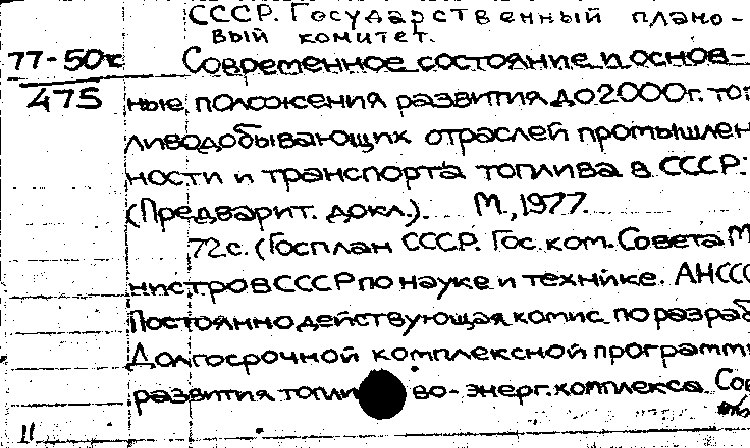 СССР. Государственный плано-
вый комитет.
77-50к Современное состояние и основ-
475 ные положения развития до 2000г. топ
ливодобывающих отраслей промышлен
ности и транспорта топлива в СССР.
(Предварит. докл.). М., 1977.
72с. (Госплан СССР. Гос. ком. Совета М
нистров СССР по науке и технике. АН ССС
Постоянно действующая комис. по разраб
Долгосрочной комплексной программ
развития топли во-энерг. комплекса. Со
11